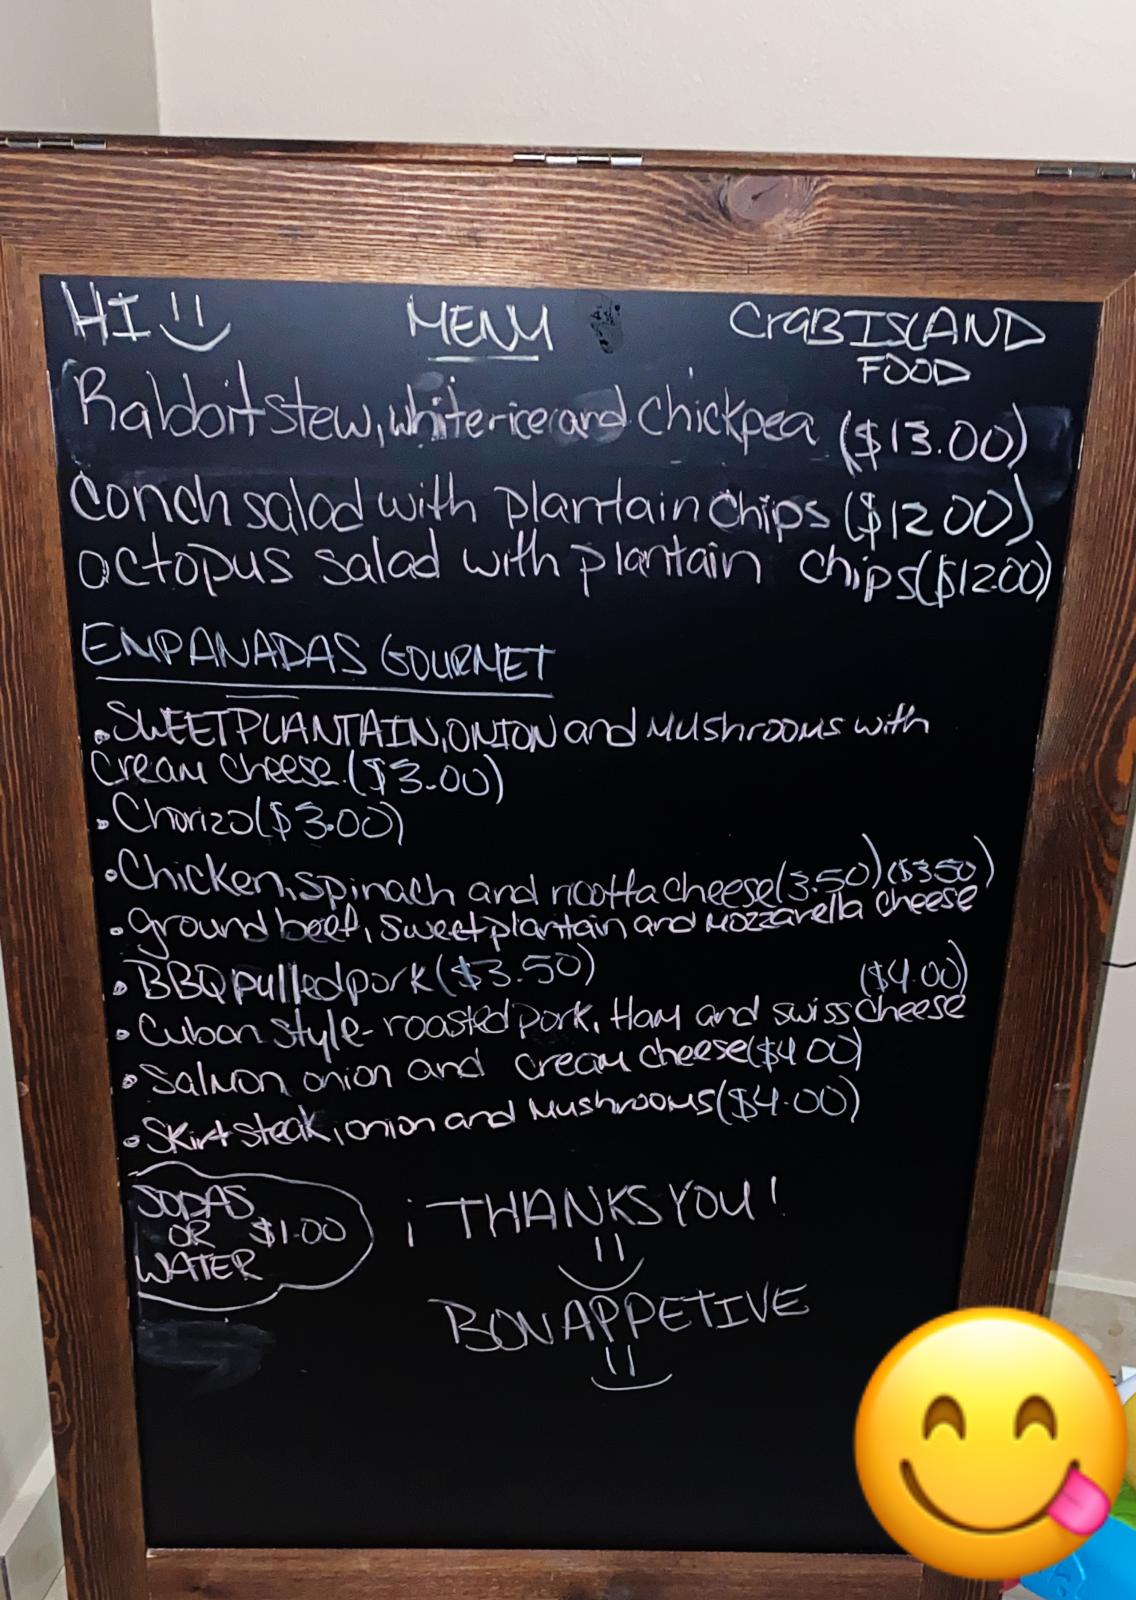 HI MENU CraB ISLAND
FOOD
Rabbit stew, white rice and chickpea ($13.00)
Conch salad with plantain chips ($12 00)
octopus salad with plantain chips ($12.00)
EMPANADAS GOURMET
• SWEET PLANTAIN, ONION and Mushrooms with
cream cheese. ($3.00)
• Chorizo ($3.00)
• Chicken, spinach and ricotta cheese (3.50) ($3.50)
• ground beef, sweet plantain and Mozzarella cheese
• BBQ pulled pork ($3.50) ($4.00)
• Cuban style- roasted pork, Ham and swiss cheese
• Salmon, onion and cream cheese ($4 00)
• Skirt steak, onion and Mushrooms ($4.00)
SODAS
OR $1.00
WATER
¡THANKS YOU!
BON APPETIVE